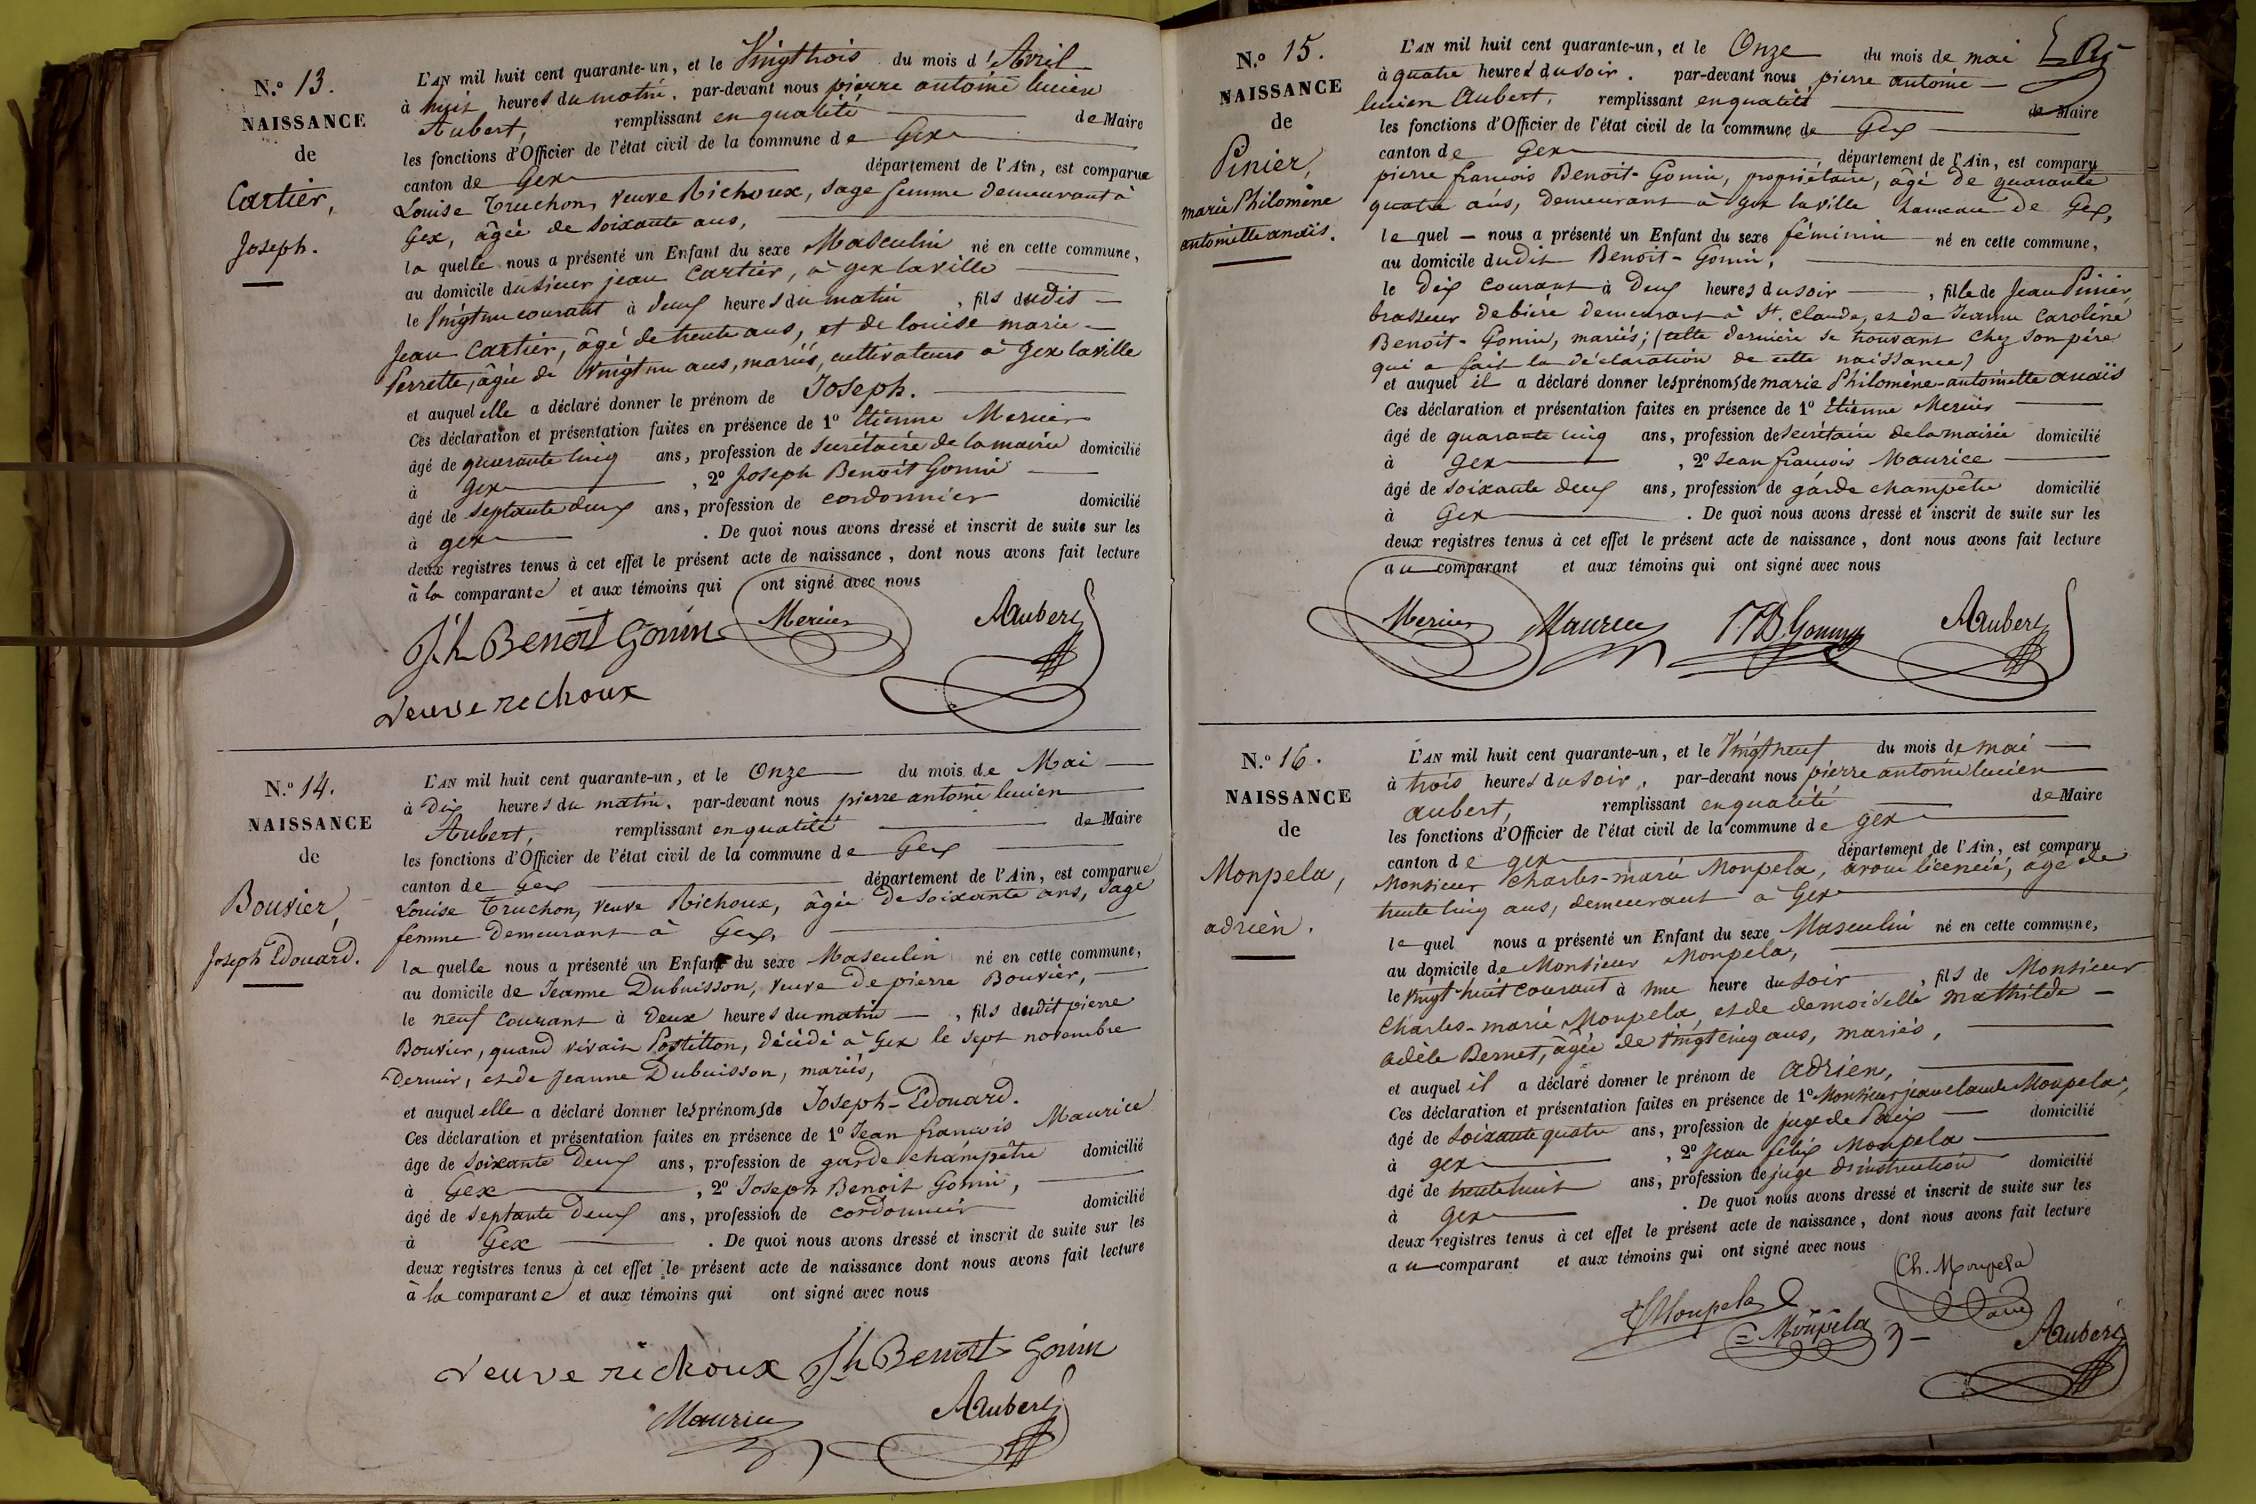 N.º 13.
NAISSANCE
de
Cartier,
Joseph.
L'AN mil huit cent quarante-un, et le Vingt trois du mois d'Avril
à huit heures du matin. par-devant nous pierre antoine lucien
Aubert, remplissant en qualité de Maire
les fonctions d'Officier de l'état civil de la commune de Gex
canton de Gex département de l'Ain, est comparue
Louise Truchon, veuve Richoux, sage femme demeurant à
Gex, âgée de soixante ans,
la quelle nous a présenté un Enfant du sexe Masculin né en cette commune,
au domicile du sieur jean Cartier, à gex la ville
le Vingt un courant à deux heures du matin, fils dudit
Jean Cartier, âgé de trente ans, et de louise marie
Perrette, âgée de vingt un ans, mariés, cultivateurs à Gex la ville
et auquel elle a déclaré donner le prénom de Joseph.
Ces déclaration et présentation faites en présence de 1º Etienne Mercier
âgé de quarante cinq ans, profession de secrétaire de la mairie domicilié
à gex, 2º Joseph Benoit Gonin
âgé de septante deux ans, profession de cordonnier domicilié
à gex. De quoi nous avons dressé et inscrit de suite sur les
deux registres tenus à cet effet le présent acte de naissance, dont nous avons fait lecture
à la comparante et aux témoins qui ont signé avec nous
Jh Benoit Gonin Mercier Aubert
veuve richoux
N.º 14.
NAISSANCE
de
Bouvier,
Joseph Edouard.
L'AN mil huit cent quarante-un, et le Onze du mois de Mai
à Dix heures du matin. par-devant nous pierre antoine lucien
Aubert, remplissant en qualité de Maire
les fonctions d'Officier de l'état civil de la commune de Gex
canton de Gex département de l'Ain, est comparue
Louise Truchon, veuve Richoux, âgée de soixante ans, sage
femme demeurant à Gex,
la quelle nous a présenté un Enfant du sexe Masculin né en cette commune,
au domicile de Jeanne Dubuisson, veuve de pierre Bouvier,
le neuf courant à deux heures du matin, fils dudit pierre
Bouvier, quand vivait Postillon, décédé à Gex le sept novembre
dernier, et de Jeanne Dubuisson, mariés,
et auquel elle a déclaré donner les prénoms de Joseph-Edouard.
Ces déclaration et présentation faites en présence de 1º Jean françois Maurice
âge de soixante deux ans, profession de garde champêtre domicilié
à Gex, 2º Joseph Benoit Gonin,
âgé de septante deux ans, profession de cordonnier domicilié
à Gex. De quoi nous avons dressé et inscrit de suite sur les
deux registres tenus à cet effet le présent acte de naissance dont nous avons fait lecture
à la comparante et aux témoins qui ont signé avec nous
veuve richoux Jh Benoit Gonin
Maurice Aubert
N.º 15.
NAISSANCE
de
Pinier,
marie Philomène
antoinette anaïs.
L'AN mil huit cent quarante-un, et le Onze du mois de mai
à quatre heures du soir. par-devant nous pierre antoine
lucien Aubert, remplissant en qualité de Maire
les fonctions d'Officier de l'état civil de la commune de Gex
canton de Gex, département de l'Ain, est comparu
pierre françois Benoit-Gonin, propriétaire, âgé de quarante
quatre ans, demeurant à Gex la ville hameau de Gex,
le quel nous a présenté un Enfant du sexe féminin né en cette commune,
au domicile dudit Benoit-Gonin,
le dix courant à deux heures du soir, fille de Jean Pinier,
brasseur de bière demeurant à St. Claude, et de Jeanne Caroline
Benoit-Gonin, mariés; (cette dernière se trouvant chez son père
qui a fait la déclaration de cette naissance)
et auquel il a déclaré donner les prénoms de marie Philomène-antoinette anaïs
Ces déclaration et présentation faites en présence de 1º Etienne Mercier
âgé de quarante cinq ans, profession de secrétaire de la mairie domicilié
à Gex, 2º Jean françois Maurice
âgé de soixante deux ans, profession de garde champêtre domicilié
à Gex. De quoi nous avons dressé et inscrit de suite sur les
deux registres tenus à cet effet le présent acte de naissance, dont nous avons fait lecture
au comparant et aux témoins qui ont signé avec nous
Mercier Maurice Gonin Aubert
N.º 16.
NAISSANCE
de
Monpela,
adrien.
L'AN mil huit cent quarante-un, et le Vingt neuf du mois de mai
à trois heures du soir, par-devant nous pierre antoine lucien
aubert, remplissant en qualité de Maire
les fonctions d'Officier de l'état civil de la commune de gex
canton de gex département de l'Ain, est comparu
Monsieur Charles-marie Monpela, avoué licencié, âgé de
trente cinq ans, demeurant à Gex
le quel nous a présenté un Enfant du sexe Masculin né en cette commune,
au domicile de Monsieur Monpela,
le vingt-huit courant à une heure du soir, fils de Monsieur
Charles-marie Monpela, et de demoiselle mathilde
adèle Bernet, âgée de vingt cinq ans, mariés,
et auquel il a déclaré donner le prénom de adrien,
Ces déclaration et présentation faites en présence de 1º Monsieur jean claude Monpela,
âgé de soixante quatre ans, profession de juge de Paix domicilié
à gex, 2º Jean félix Monpela
âgé de trente huit ans, profession de juge d'instruction domicilié
à gex. De quoi nous avons dressé et inscrit de suite sur les
deux registres tenus à cet effet le présent acte de naissance, dont nous avons fait lecture
au comparant et aux témoins qui ont signé avec nous
Ch. Monpela
Monpela
Monpela
Aubert